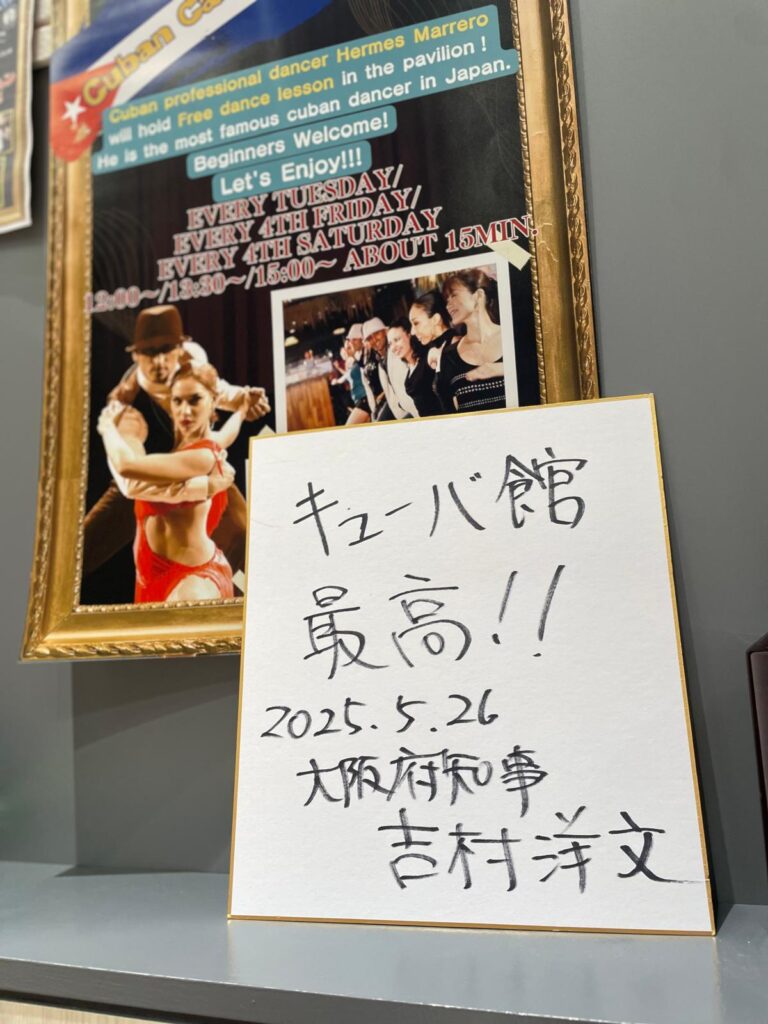 Cuban Ca
Cuban professional dancer Hermes Marrero
will hold Free dance lesson in the pavilion !
He is the most famous cuban dancer in Japan.
Beginners Welcome!
Let's Enjoy!!!
EVERY TUESDAY/
EVERY 4TH FRIDAY/
EVERY 4TH SATURDAY
12:00～/13:30～/15:00～ ABOUT 15MIN.
キューバ館
最高!!
2025.5.26
大阪府知事
吉村洋文